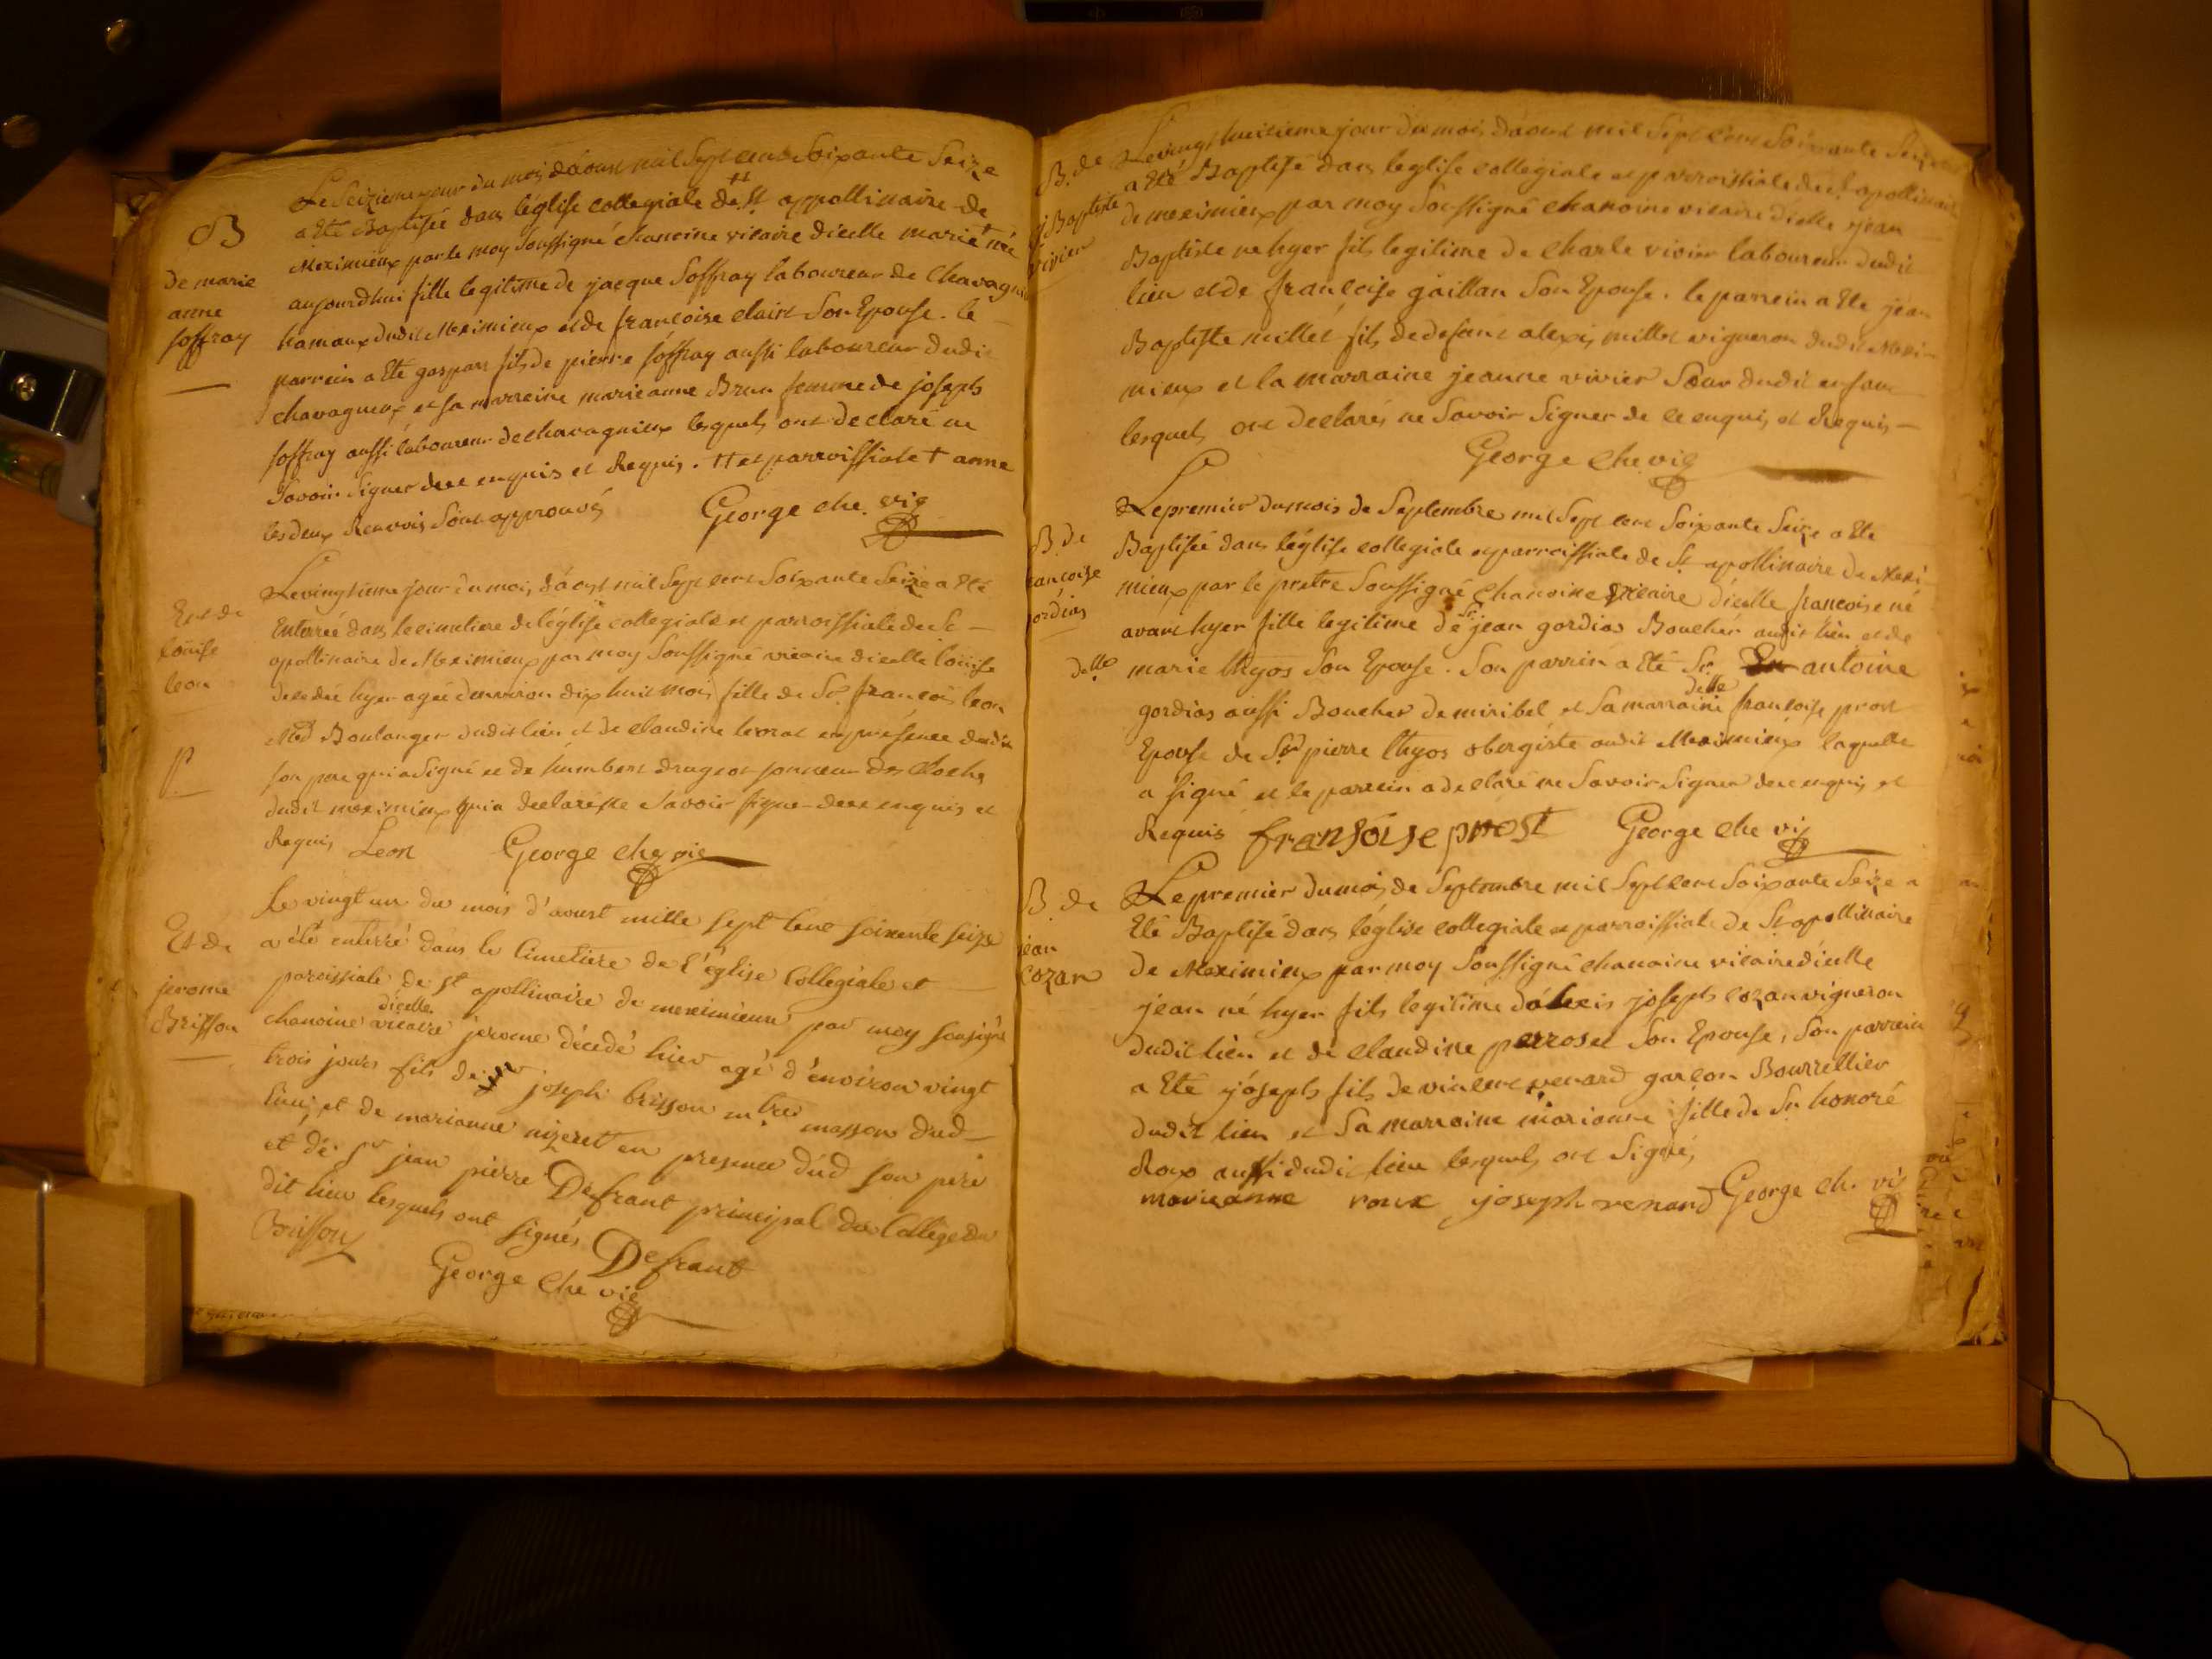 Le Seizieme jour du mois daoust mil Sept cent Soixante Seize
a Eté Baptisée dans l'église collegiale de †† St appollinaire de
B
Meximieux par le moy soussigné chanoine vicaire dicelle marie † née
de marie
anne
soffray
aujourdhui fille legitime de jacque Soffray laboureur de Chavagnieux
hamaux dudit Meximieux et de francoise clairet Son Epouse. le
parrein a Eté gaspars fils de pierre soffray aussi laboureur dudit
chavagnieux et sa marreine marieanne Brun femme de joseph
soffray aussi laboureur de chavagnieux lesquels ont declaré ne
Savoir Signer de ce enquis et Requis. †† et parroissiale † anne
les deux Renvois Sont approuvés George che. vic
Le vingtieme jour du mois d'aoust mil Sept cent Soixante Seize a Eté
Ent de
louise
leon
Enterrée dans le cimetiere de l'église collegiale et parroissiale de St
apollinaire de Meximieux par moy Soussigné vicaire dicelle louise
decedée hyer agée d'environ dix huit mois fille de Sr. francois leon
Md Boulanger dudit lieu et de claudine levrat en présence dudit
P
son pere qui a Signé et de humbert drugeot sonneur des cloches
dudit meximieux qui a declaré ne Savoir signer de ce enquis et
Requis Leon George che vic
Le vingt un du mois d'aoust mille sept cent soixente seize
Et de
jerome
Brisson
a été enterré dans le cimetiere de l'église Collegiale et
paroissiale de st apollinaire de meximieux par moy sousigné
chanoine vicaire dicelle jerome décédé hier agé d'environ vingt
trois jours fils de joseph brisson mtre masson dud
lieu, et de marianne nizeret en presence dud son pere
et de sr jean pierre Defrant principal du College du
dit lieu lesquels ont signés
Brisson Defrant
George che vic
Le vingt huitieme jour du mois daoust mil Sept cent Soixante Seize
B. de
j Baptiste
vivier
a Eté Baptisé dans leglise collegiale et parroissiale de St apollinaire
de meximieux par moy Soussigné chanoine vicaire dicelle jean
Baptiste né hyer fils legitime de Charle vivier laboureur dudit
lieu et de francoise gaillan Son Epouse. le parrein a Eté jean
Baptiste millet fils de defunt alexis millet vigneron dudit Mexi-
mieux et la marraine jeanne vivier Sœur dudit enfant
lesquels ont declarés ne Savoir Signer de ce enquis et Requis
George che vic
Le premier du mois de Septembre mil Sept cent Soixante Seize a Eté
B. de
francoise
gordias
Baptisée dans l'église collegiale et parroissiale de St apollinaire de Mexi-
mieux par le pretre Soussigné chanoine vicaire dicelle francoise né
avant hyer fille legitime de Sr. jean gordias Boucher audit lieu et de
delle marie thyos Son Epouse. Son parrin a Eté Sr. antoine
gordias aussi Boucher de miribel et Sa marraine delle francoise prost
Epouse de Sr pierre thyos obergiste audit Meximieux laquelle
a signé et le parrein a declaré ne Savoir Signer de ce enquis et
Requis fransóise prost George che vic
Le premier du mois de Septembre mil Sept cent Soixante Seize a
B de
jean
Cozan
Eté Baptisé dans l'église collegiale et parroissiale de St apollinaire
de Meximieux par moy Soussigné chanoine vicaire dicelle
jean né hyer fils legitime d'alexis joseph cozan vigneron
dudit lieu et de claudine perroset Son Epouse, Son parrein
a Eté joseph fils de vincent renard garçon Bourrellier
dudit lieu et Sa marraine marianne fille de Sr. honoré
Roux aussi dudit lieu lesquels ont Signé,
marieanne roux joseph renard George ch. vic